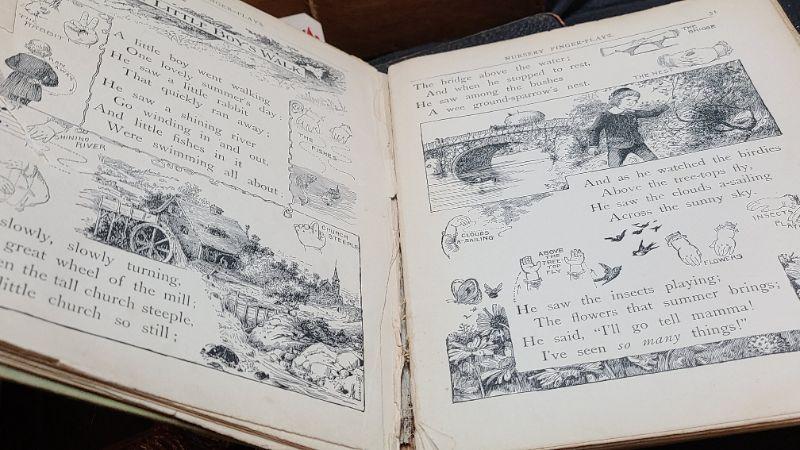 FINGER-PLAYS
LITTLE BOY'S WALK
THE
RABBIT
A little boy went walking
One lovely summer's day;
He saw a little rabbit
That quickly ran away;
He saw a shining river
Go winding in and out,
And little fishes in it
Were swimming all about.
RAN
AWAY
SHINING
RIVER
FISHES
CHURCH
STEEPLE
slowly, slowly turning,
great wheel of the mill;
the tall church steeple,
little church so still;
NURSERY FINGER-PLAYS.
31
The bridge above the water;
And when he stopped to rest,
He saw among the bushes
A wee ground-sparrow's nest.
THE
BRIDGE
THE NEST
And as he watched the birdies
Above the tree-tops fly,
He saw the clouds a-sailing
Across the sunny sky.
CLOUDS
A-SAILING
ABOVE
THE
TREE
TOP
FLY
FLOWERS
INSECTS
PLAY
He saw the insects playing;
The flowers that summer brings;
He said, "I'll go tell mamma!
I've seen so many things!"